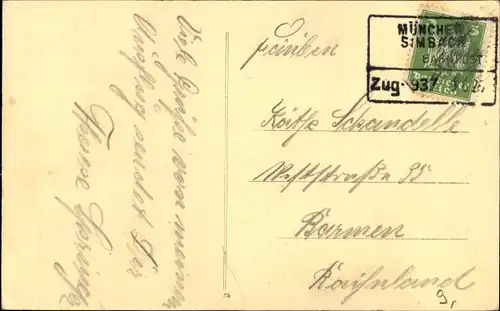 Viele Grüße vom meinem
Ausflug sendet Dir
MÜNCHEN
SIMBACH
BAHNPOST
Zug 937
Käthe Schandelle
Weststraße 95
Barmen
Rheinland